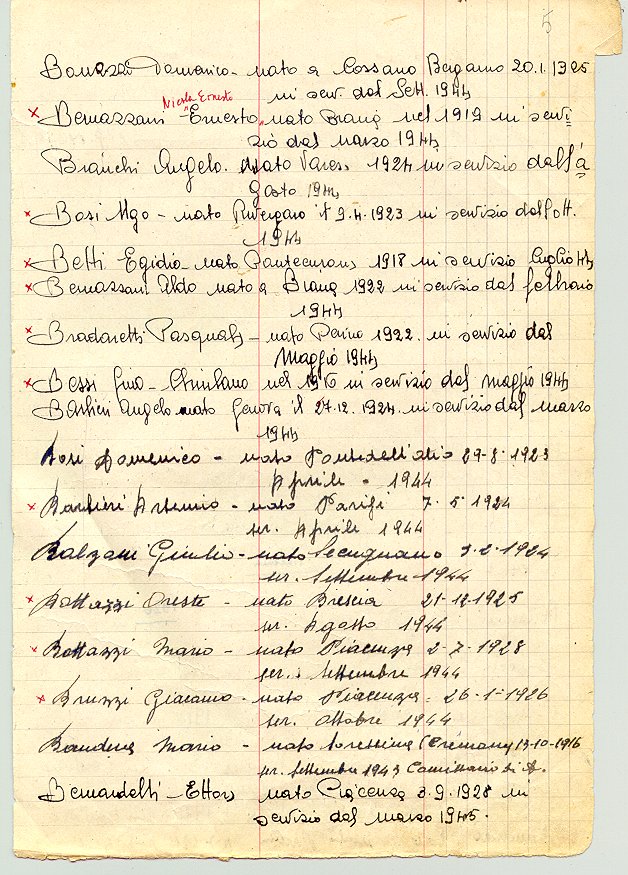 5
Domenico - nato a Cossano Bergamo 20.1.1925
in serv. dal Sett. 1944
Nicola Ernesto
x Bernazzani "Ernesto" nato nel 1919 in servi
zio dal marzo 1944
Bianchi Angelo. nato Vares 1924 in servizio dall'a
gosto 1944
x Bosi Ugo - nato Rivergaro il 9.4.1923 in servizio dall'ott.
1944
x Betti Egidio - nato 1918 in servizio luglio 44
x Bernazzani Aldo nato a 1922 in servizio dal febbraio
1944
x Pasquale - nato Perino 1922. in servizio dal
Maggio 1944
x Bessi Gino - nel in servizio dal maggio 1944
Barbieri Angelo nato Genova il 27.12.1924. in servizio dal marzo
1944
Domenico - nato Pontedell'olio 29-8-1923
Aprile - 1944
x Barbieri Artemio - nato Parigi 7-5-1924
ser. Aprile 1944
Balzani Giulio - nato Secugnano 3-2-1924
ser. Settembre 1944
x Bottazzi Oreste - nato Brescia 21-12-1925
ser. Agosto 1944
x Bottazzi Mario - nato Piacenza 2-7-1928
ser. Settembre 1944
x Bruzzi Giacomo - nato Piacenza - 26-1-1926
ser. Ottobre 1944
Mario - nato Soressina (Cremona) 13-10-1916
ser. Settembre 1943 Comissario di
Bernardelli - Ettore nato Piacenza 3.9.1928 in
servizio dal marzo 1945.